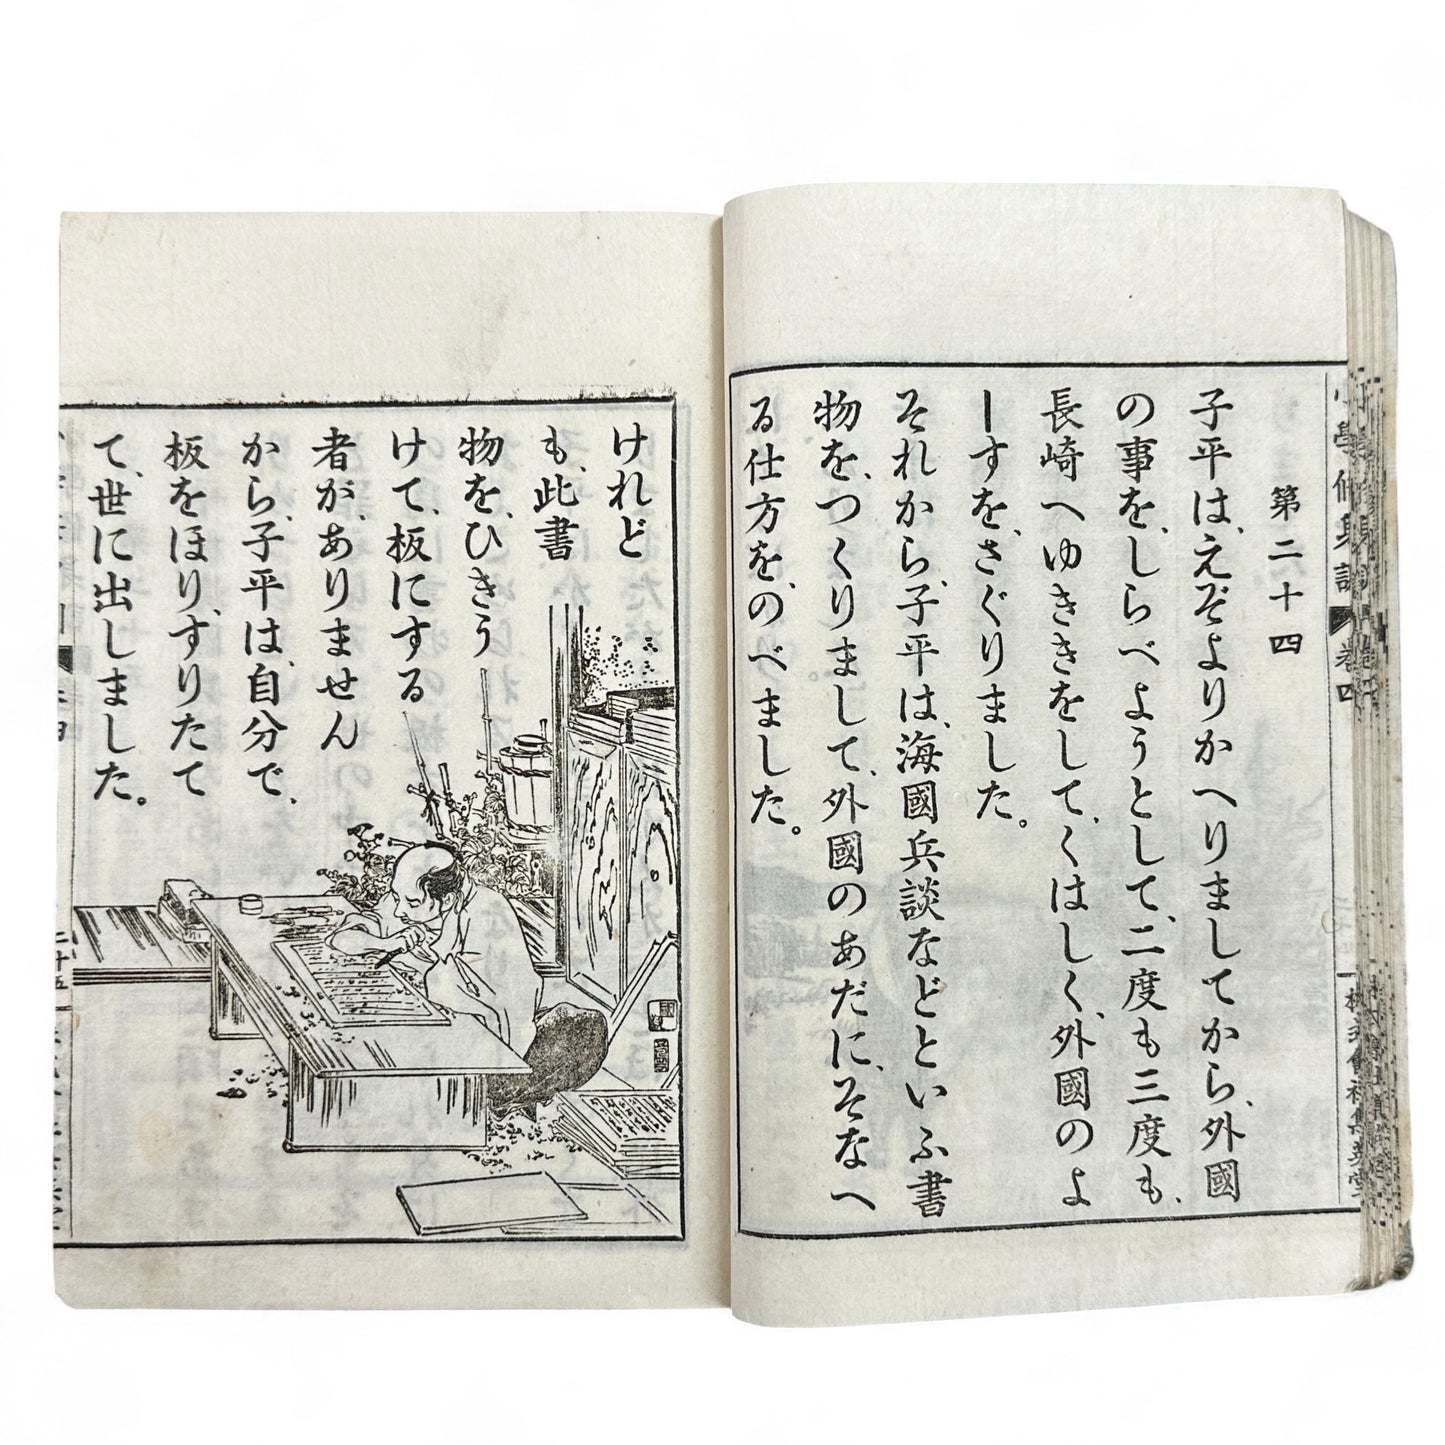 小學修身訓 卷四
第二十四
子平は、えぞよりかへりましてから、外國
の事を、しらべようとして、二度も三度も、
長崎へゆききをして、くはしく、外國のよ
ーすを、さぐりました。
それから、子平は、海國兵談などといふ書
物を、つくりまして、外國のあだに、そなへ
る仕方を、のべました。
けれど
も、此書
物を、ひきう
けて、板にする
者が、ありません
から、子平は、自分で、
板をほり、すりたて
て、世に出しました。
二十五